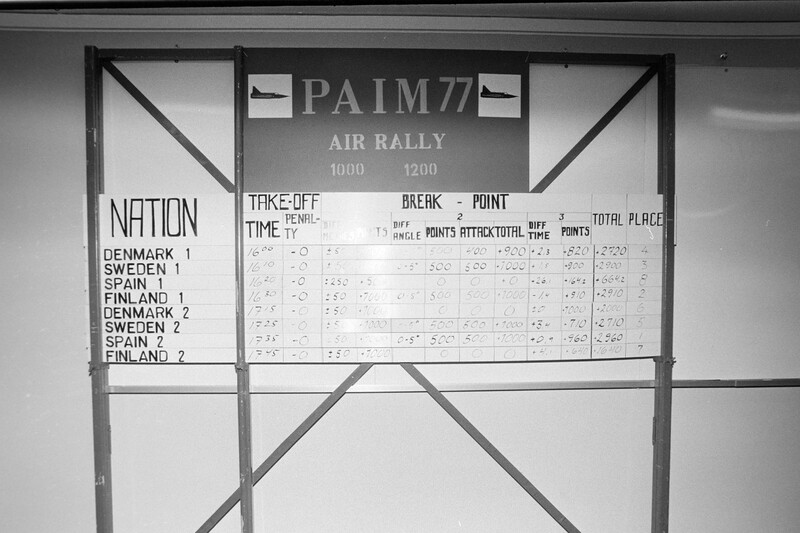 PAIM 77
AIR RALLY
1000 1200
NATION TAKE-OFF BREAK - POINT
TIME PENAL-TY 2 3 TOTAL PLACE
DIFF ANGLE POINTS ATTACK TOTAL DIFF TIME POINTS
DENMARK 1 16 00 -0 500 400 +900 +820 +2720 4
SWEDEN 1 16 10 -0 500 500 +1000 +900 +2900 3
SPAIN 1 16 20 -0 ±250 0 0 8
FINLAND 1 16 30 -0 ±50 +1000 0.5° 500 500 +1000 +910 +2910 2
DENMARK 2 17 15 -0 ±50 0 0 0 +1000 6
SWEDEN 2 17 25 -0 ±50 +1000 500 500 +1000 +710 +2710 5
SPAIN 2 17 35 -0 +1000 0.5° 500 500 +1000 +960 +2960 1
FINLAND 2 17 45 -0 ±50 +1000 0 0 0 7